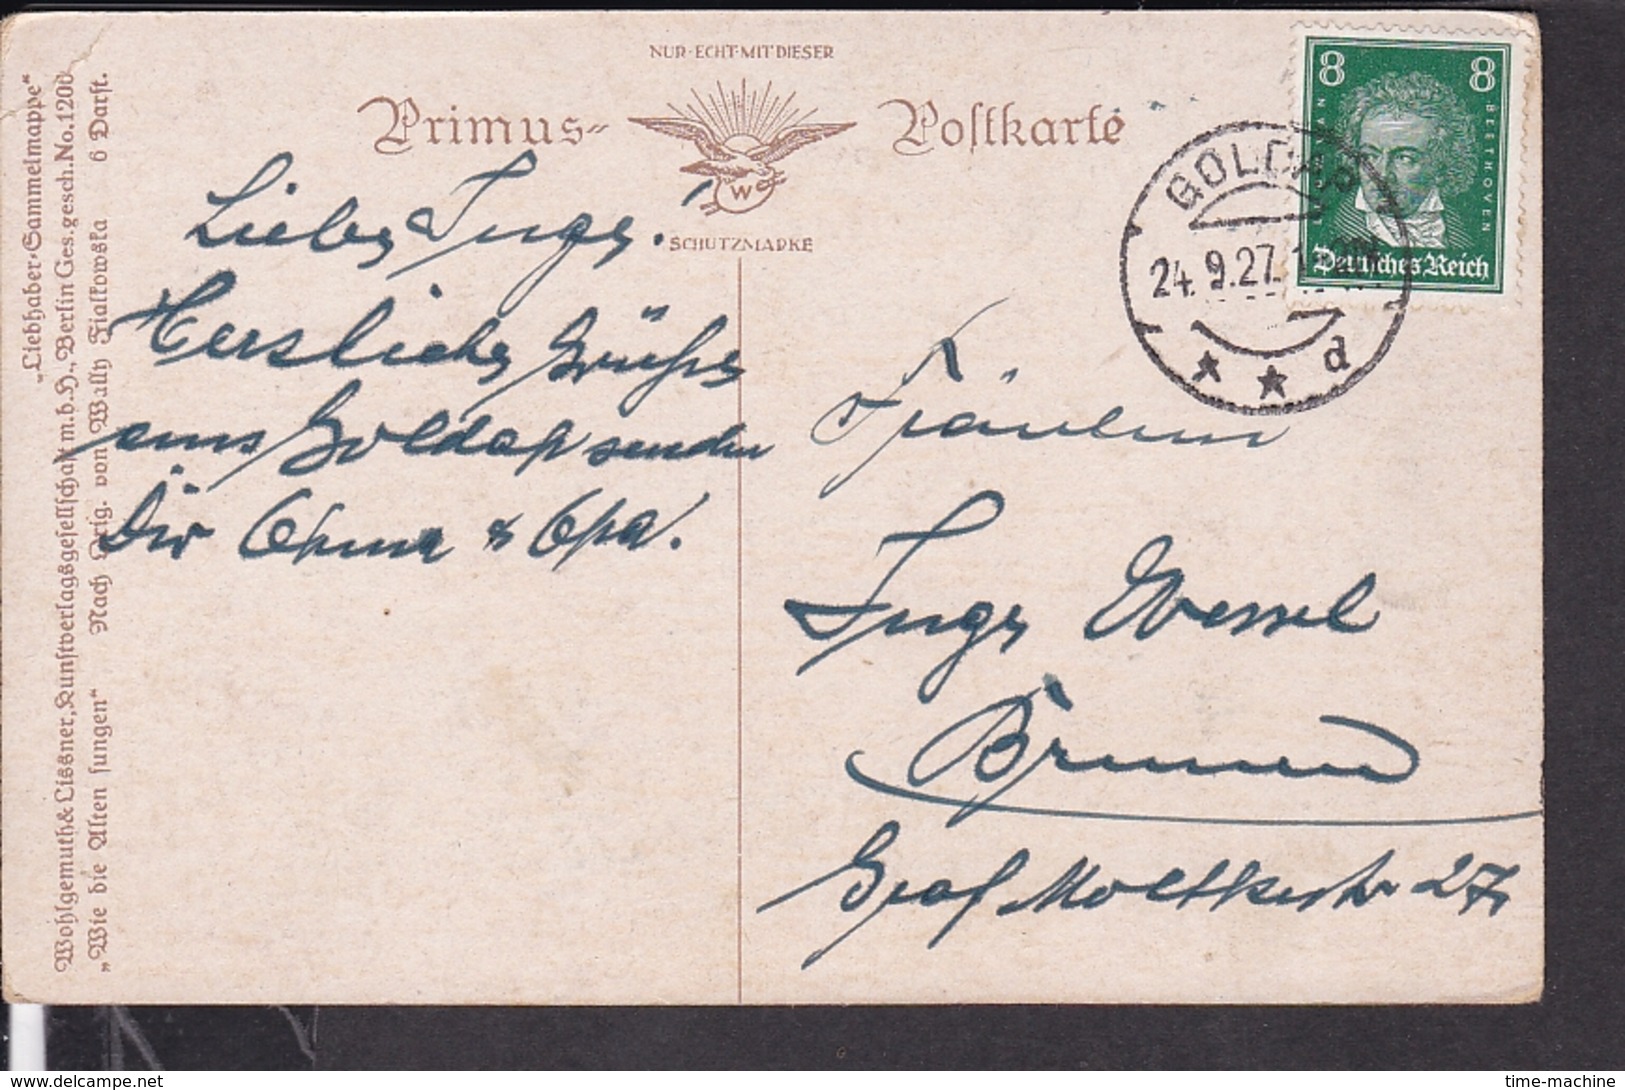 „Liebhaber-Sammelmappe“
Wohlgemuth & Lissner, Kunstverlagsgesellschaft m.b.H., Berlin Ges.gesch. No. 1200
„Wie die Alten sungen“ Nach Orig. von Wally Fialkowska 6 Darst.
NUR·ECHT·MIT DIESER
Primus- Postkarte
W
SCHUTZMARKE
8 8
BEETHOVEN
Deutsches Reich
GOLDAP
24.9.27.
* * d
Liebe Inge!
Herzliche Grüße
aus Goldap senden
Dir Ohma & Opa.
Fräulein
Inge Wessel
Bremen
Graf Moltkestr 27
time-machine
www.delcampe.net